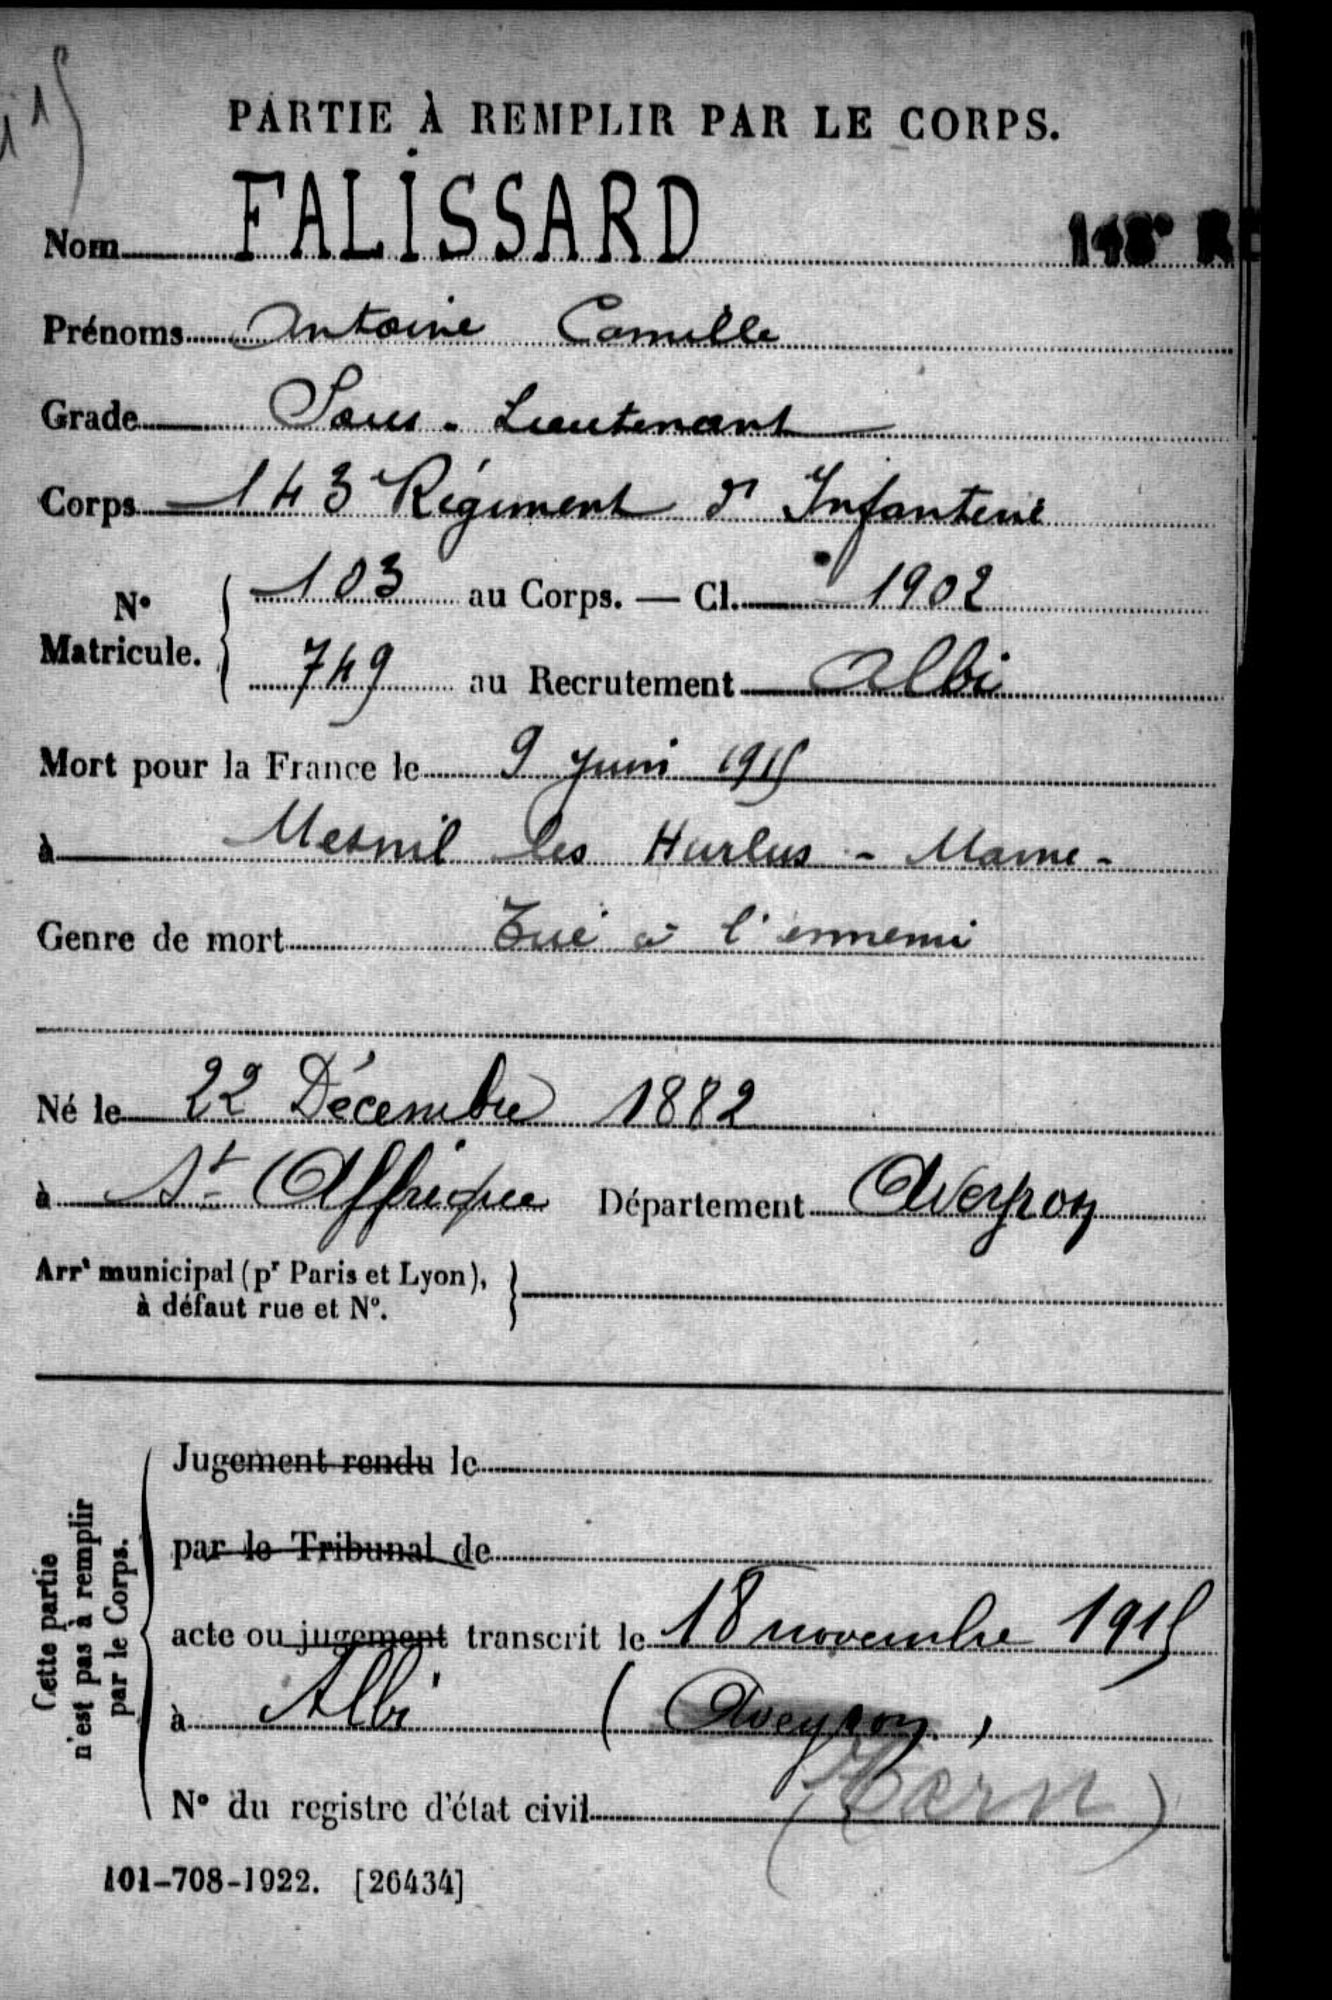 PARTIE À REMPLIR PAR LE CORPS.
Nom FALISSARD
Prénoms Antoine Camille
Grade Sous-Lieutenant
Corps 143e Régiment d'Infanterie
N° Matricule. 103 au Corps. — Cl. 1902
749 au Recrutement Albi
Mort pour la France le 9 Juin 1915
à Mesnil les Hurlus - Marne -
Genre de mort Tué à l'ennemi
Né le 22 Décembre 1882
à St Affrique Département Aveyron
Arrt municipal (pr Paris et Lyon),
à défaut rue et N°.
Cette partie
n'est pas à remplir
par le Corps.
Jugement rendu le
par le Tribunal de
acte ou jugement transcrit le 18 novembre 1915
à Albi (Aveyron)
(Tarn)
N° du registre d'état civil
101-708-1922. [26434]